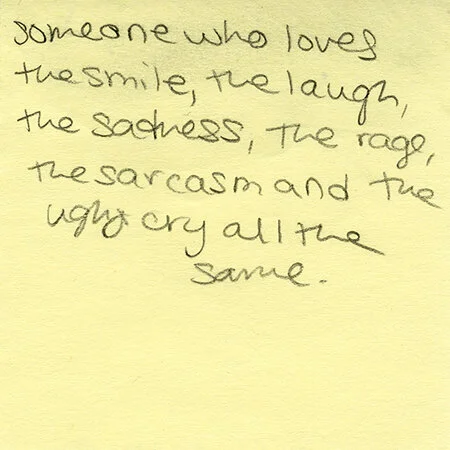 someone who loves
the smile, the laugh,
the sadness, the rage,
the sarcasm and the
ugly cry all the
same.